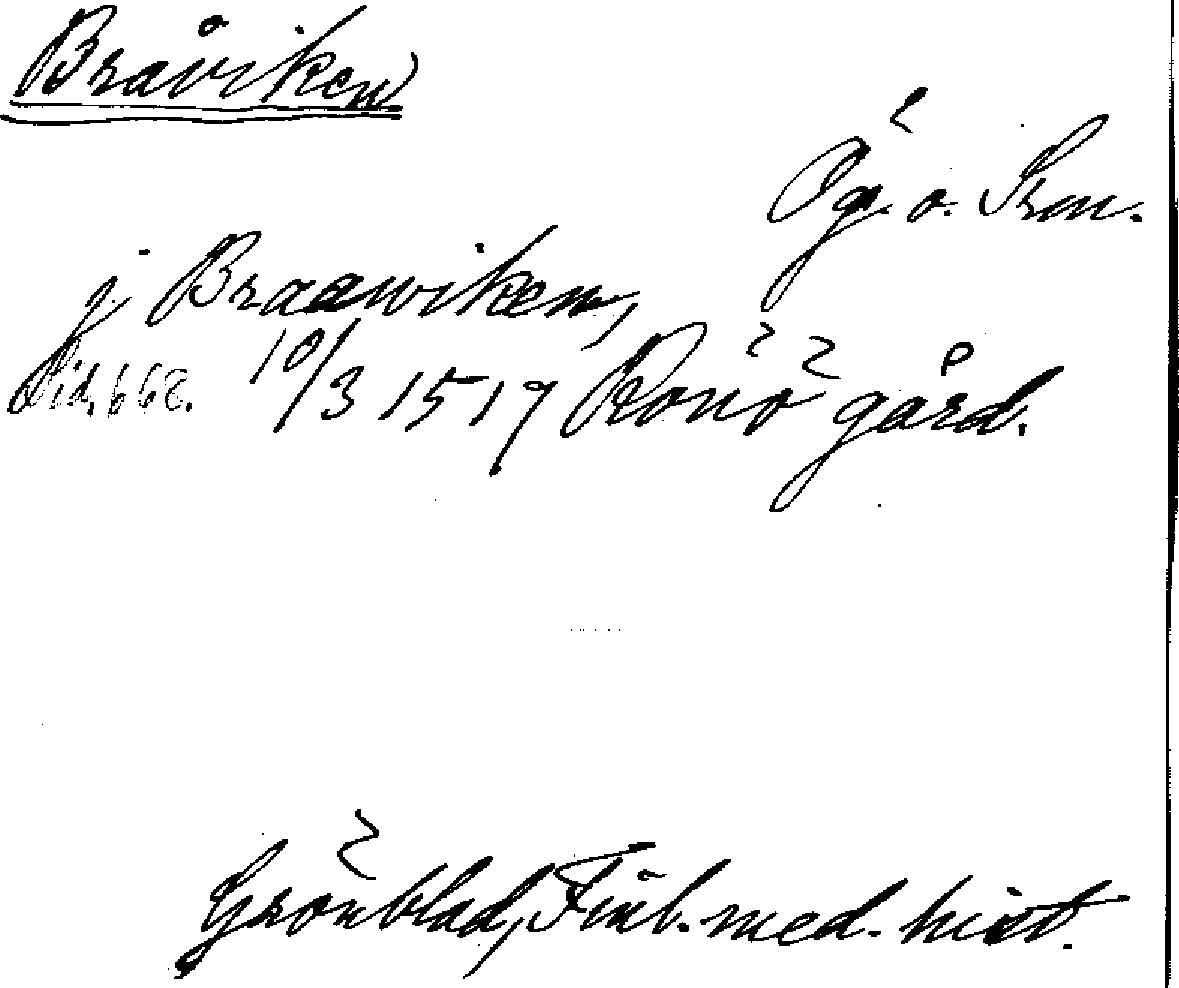 Bråviken
Ög. o. Srm.
j Braawiken,
Sid. 668. 10/3 1517 Rönö gård.
Grönblad, Finl. med. hist.